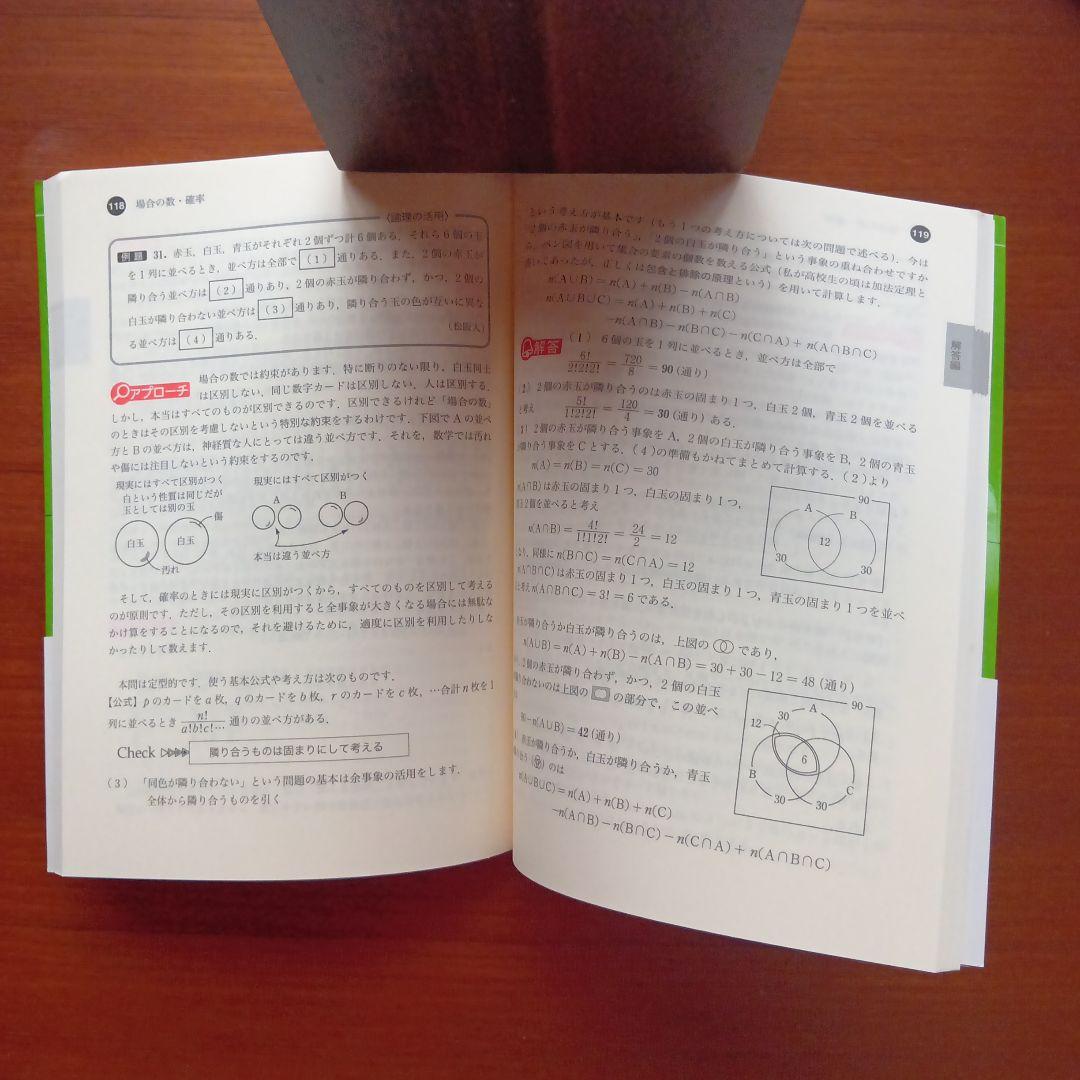 118 場合の数・確率
〈論理の活用〉
例題 31. 赤玉，白玉，青玉がそれぞれ2個ずつ計6個ある．それら6個の玉
を1列に並べるとき，並べ方は全部で (1) 通りある．また，2個の赤玉が
隣り合う並べ方は (2) 通りあり，2個の赤玉が隣り合わず，かつ，2個の
白玉が隣り合わない並べ方は (3) 通りあり，隣り合う玉の色が互いに異な
る並べ方は (4) 通りある．
（松阪大）
アプローチ
場合の数では約束があります．特に断りのない限り，白玉同士
は区別しない，同じ数字カードは区別しない，人は区別する．
しかし，本当はすべてのものが区別できるのです．区別できるけれど「場合の数」
のときはその区別を考慮しないという特別な約束をするわけです．下図でAの並べ
方とBの並べ方は，神経質な人にとっては違う並べ方です．それを，数学では汚れ
や傷には注目しないという約束をするのです．
現実にはすべて区別がつく
白という性質は同じだが
玉としては別の玉
傷
白玉 白玉
汚れ
現実にはすべて区別がつく
A B
本当は違う並べ方
そして，確率のときには現実に区別がつくから，すべてのものを区別して考える
のが原則です．ただし，その区別を利用すると全事象が大きくなる場合には無駄な
かけ算をすることになるので，それを避けるために，適度に区別を利用したりしな
かったりして数えます．
本問は定型的です．使う基本公式や考え方は次のものです．
【公式】pのカードをa枚，qのカードをb枚，rのカードをc枚，…合計n枚を1
列に並べるとき n!/a!b!c!… 通りの並べ方がある．
Check 隣り合うものは固まりにして考える
（3）「同色が隣り合わない」という問題の基本は余事象の活用をします．
全体から隣り合うものを引く
119
という考え方が基本です（もう1つの考え方については次の問題で述べる）．今は
「2個の赤玉が隣り合う」，「2個の白玉が隣り合う」という事象の重ね合わせですか
ら，ベン図を用いて集合の要素の個数を数える公式（私が高校生の頃は加法定理と
書いてあったが，正しくは包含と排除の原理という）を用いて計算します．
n(A∪B)＝n(A)＋n(B)－n(A∩B)
n(A∪B∪C)＝n(A)＋n(B)＋n(C)
－n(A∩B)－n(B∩C)－n(C∩A)＋n(A∩B∩C)
解答編
解答 （1） 6個の玉を1列に並べるとき，並べ方は全部で
6!/2!2!2!＝720/8＝90（通り）
2） 2個の赤玉が隣り合うのは赤玉の固まり1つ，白玉2個，青玉2個を並べる
と考え 5!/1!2!2!＝120/4＝30（通り）ある．
2個の赤玉が隣り合う事象をA，2個の白玉が隣り合う事象をB，2個の青玉
隣り合う事象をCとする．（4）の準備もかねてまとめて計算する．（2）より
n(A)＝n(B)＝n(C)＝30
n(A∩B)は赤玉の固まり1つ，白玉の固まり1つ，
玉2個を並べると考え
n(A∩B)＝4!/1!1!2!＝24/2＝12
なり，同様に n(B∩C)＝n(C∩A)＝12
n(A∩B∩C)は赤玉の固まり1つ，白玉の固まり1つ，青玉の固まり1つを並べ
と考え n(A∩B∩C)＝3!＝6である．
90
A B
12
30 30
玉が隣り合うか白玉が隣り合うのは，上図の であり，
n(A∪B)＝n(A)＋n(B)－n(A∩B)＝30＋30－12＝48（通り）
2個の赤玉が隣り合わず，かつ，2個の白玉
り合わないのは上図の の部分で，この並べ
90－n(A∪B)＝42（通り）
赤玉が隣り合うか，白玉が隣り合うか，青玉
のは
n(A∪B∪C)＝n(A)＋n(B)＋n(C)
－n(A∩B)－n(B∩C)－n(C∩A)＋n(A∩B∩C)
90
A
30
12
6
B C
30 30